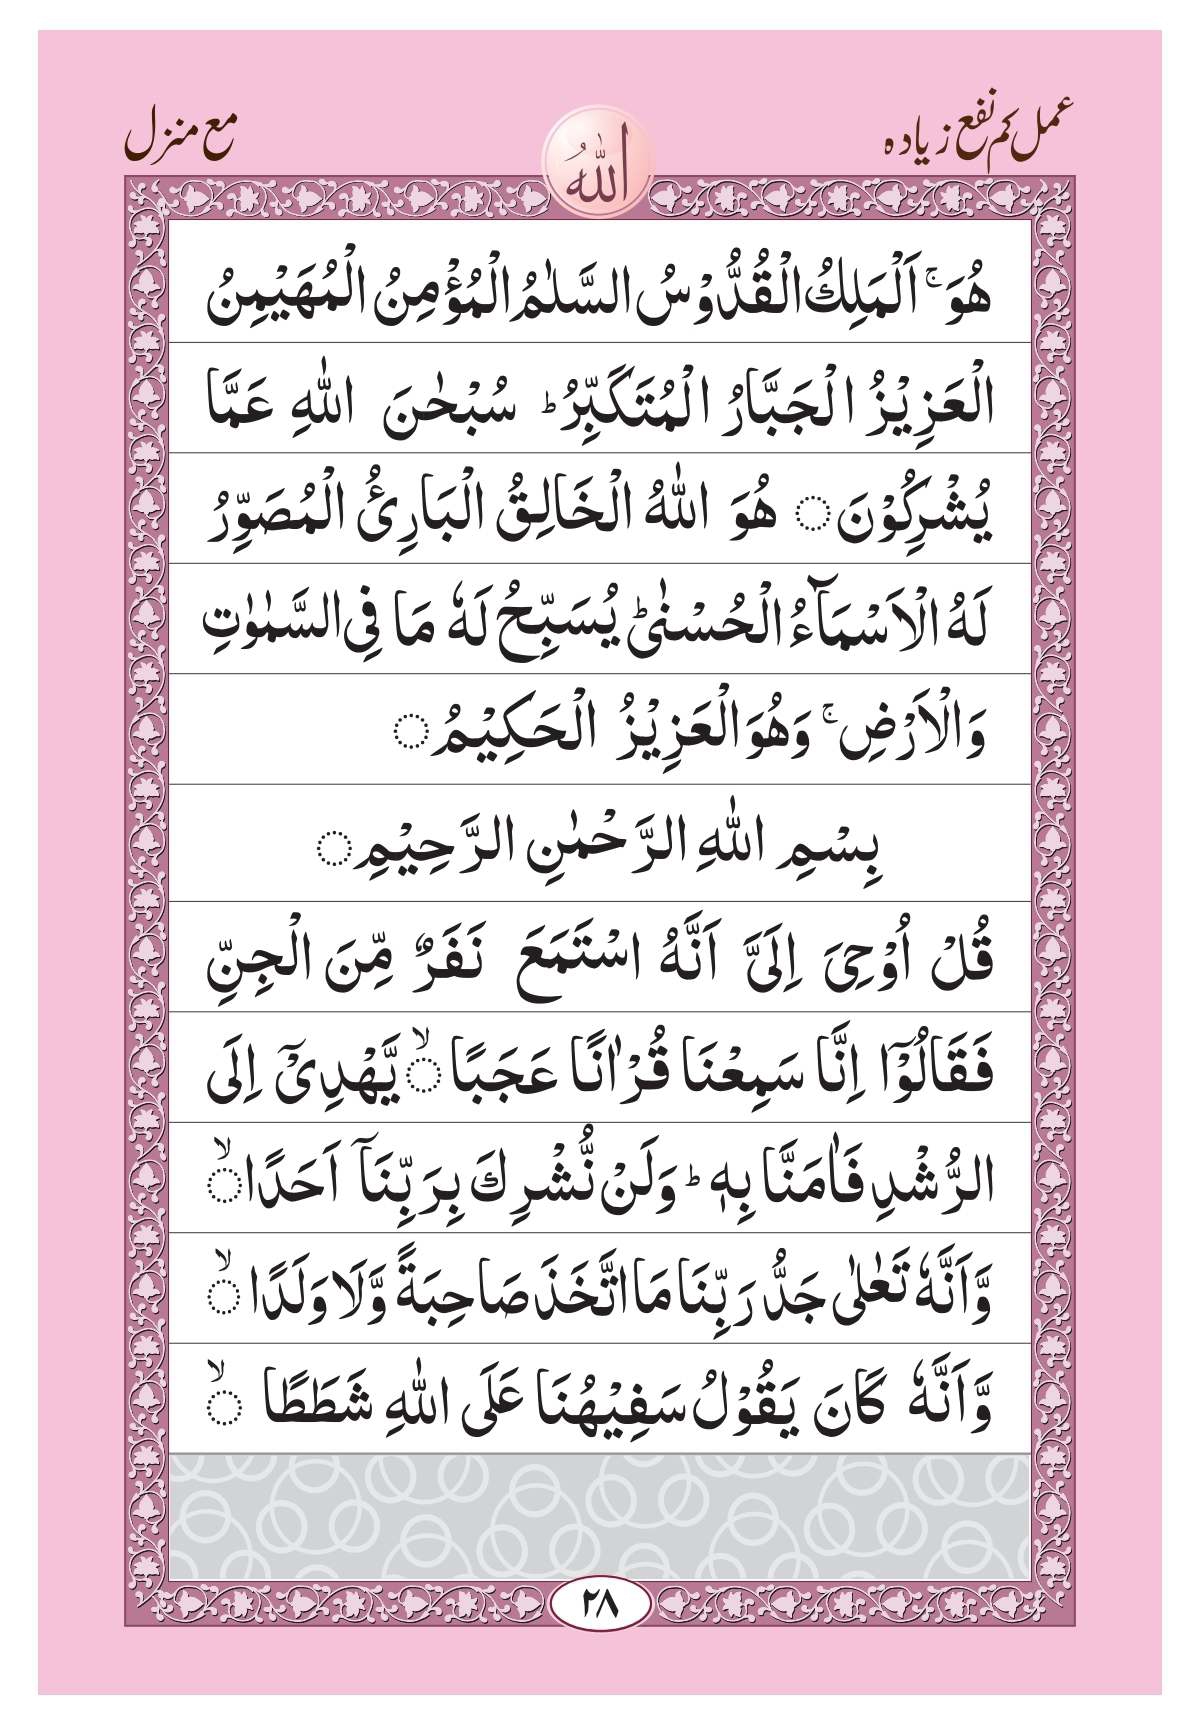 عمل کم نفع زیادہ
مع منزل
اللہ
هُوَ ۚ اَلْمَلِكُ الْقُدُّوْسُ السَّلٰمُ الْمُؤْمِنُ الْمُهَيْمِنُ
الْعَزِيْزُ الْجَبَّارُ الْمُتَكَبِّرُ ؕ سُبْحٰنَ اللّٰهِ عَمَّا
يُشْرِكُوْنَ ۝ هُوَ اللّٰهُ الْخَالِقُ الْبَارِئُ الْمُصَوِّرُ
لَهُ الْاَسْمَآءُ الْحُسْنٰىؕ يُسَبِّحُ لَهٗ مَا فِى السَّمٰوٰتِ
وَالْاَرْضِ ۚ وَهُوَ الْعَزِيْزُ الْحَكِيْمُ ۝
بِسْمِ اللّٰهِ الرَّحْمٰنِ الرَّحِيْمِ ۝
قُلْ اُوْحِىَ اِلَىَّ اَنَّهُ اسْتَمَعَ نَفَرٌ مِّنَ الْجِنِّ
فَقَالُوْۤا اِنَّا سَمِعْنَا قُرْاٰنًا عَجَبًا ۝ۙ يَّهْدِىْۤ اِلَى
الرُّشْدِ فَاٰمَنَّا بِهٖ ؕ وَلَنْ نُّشْرِكَ بِرَبِّنَاۤ اَحَدًا ۝ۙ
وَّاَنَّهٗ تَعٰلٰى جَدُّ رَبِّنَا مَا اتَّخَذَ صَاحِبَةً وَّلَا وَلَدًا ۝ۙ
وَّاَنَّهٗ كَانَ يَقُوْلُ سَفِيْهُنَا عَلَى اللّٰهِ شَطَطًا ۝ۙ
٢٨